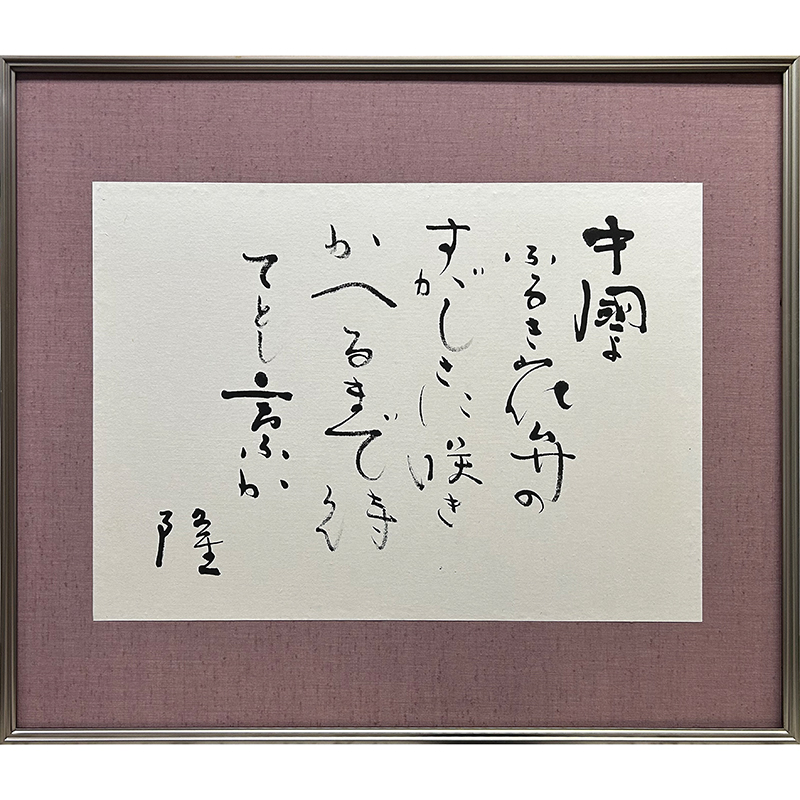 中國よ
ふるき花弁の
すがしさに咲き
かへるまで待
てとし言ふか
隆